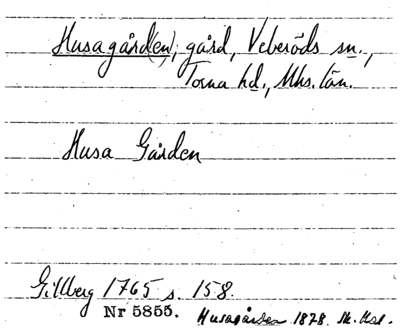 Husagård(en), gård, Veberöds sn.,
Torna hd., Mhs. län.
Husa Gården
Gillberg 1765 s. 158.
Nr 5855. Husagården 1878. Sk. Kal.